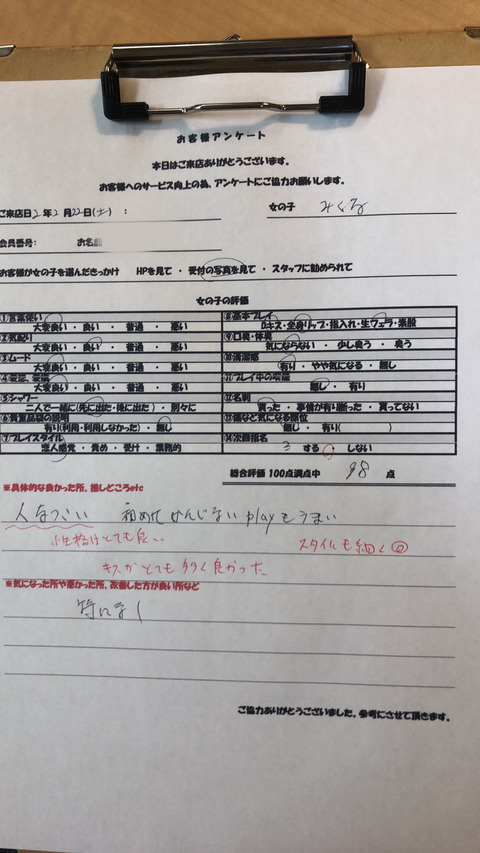 お客様アンケート
本日はご来店ありがとうございます。
お客様へのサービス向上の為、アンケートにご協力お願いします。
ご来店日2年2月22日(土) : 女の子 みくる
会員番号: お名前
お客様が女の子を選んだきっかけ HPを見て ・ 受付の写真を見て ・ スタッフに勧められて
女の子の評価
①言葉使い
大変良い ・ 良い ・ 普通 ・ 悪い
②気配り
大変良い ・ 良い ・ 普通 ・ 悪い
③ムード
大変良い ・ 良い ・ 普通 ・ 悪い
④
大変良い ・ 良い ・ 普通 ・ 悪い
⑤シャワー
二人で一緒に(先に出た・後に出た) ・ 別々に
⑥貴重品袋の説明
有り(利用・利用しなかった) ・ 無し
⑦プレイスタイル
恋人感覚 ・ 責め ・ 受け ・ 業務的
⑧基本プレイ
Dキス・全身リップ・指入れ・生フェラ・素股
⑨口臭・体臭
気にならない ・ 少し臭う ・ 臭う
⑩清潔感
有り ・ やや気になる ・ 無し
⑪プレイ中の
無し ・ 有り
⑫名刺
貰った ・ 事情が有り断った ・ 貰ってない
⑬傷など気になる部位
無し ・ 有り( )
⑭次回指名
する ・ しない
総合評価 100点満点中 98 点
※具体的な良かった所、推しどころetc
人なつこい 初めてかんじない playもうまい
性格はとても良い。 スタイルも細く◎
キスがとても多く良かった
※気になった所や悪かった所、改善した方が良い所など
特になし
ご協力ありがとうございました。参考にさせて頂きます。